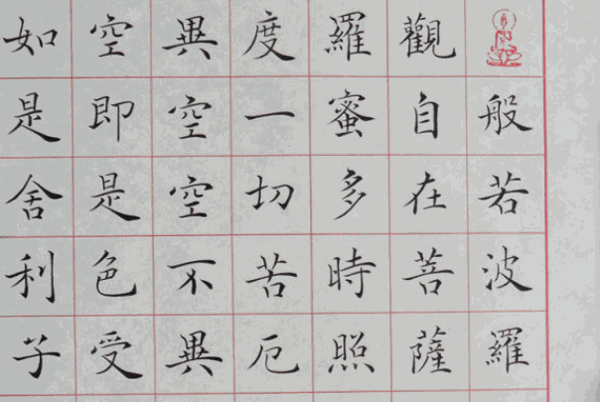 般若波羅
觀自在菩薩
羅蜜多時照
度一切苦厄
異空空不異
空即是色受
如是舍利子